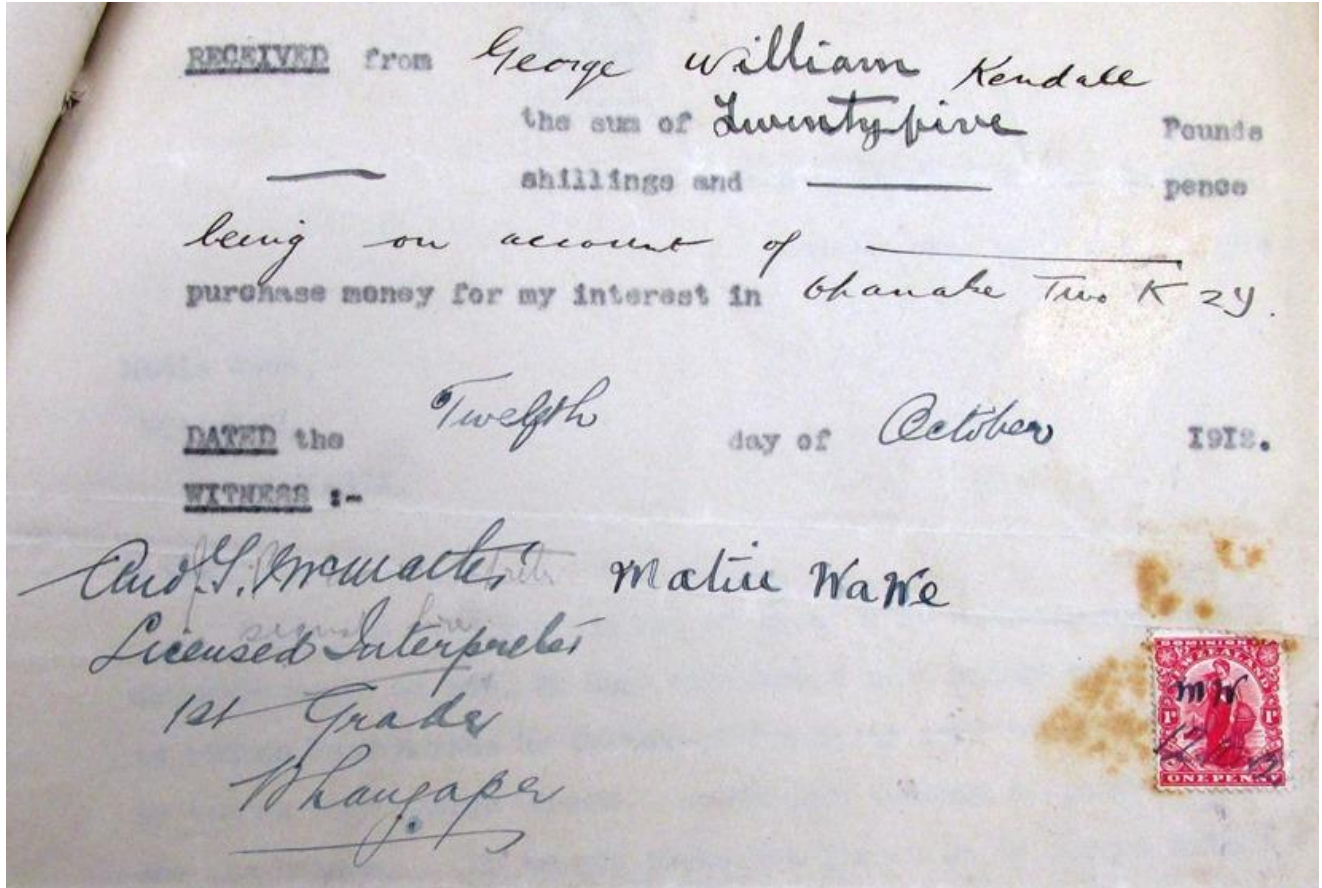 RECEIVED from George William Kendall
the sum of Twentyfive Pounds
shillings and pence
being on account of
purchase money for my interest in Ohanake Two K 2Y.
DATED the Twelfth day of October 1912.
WITNESS :-
Matiu WaWe
Licensed Interpreter
1st Grade
Whangarei
DOMINION
ZEALAND
MW
1D 1D
ONE PENNY